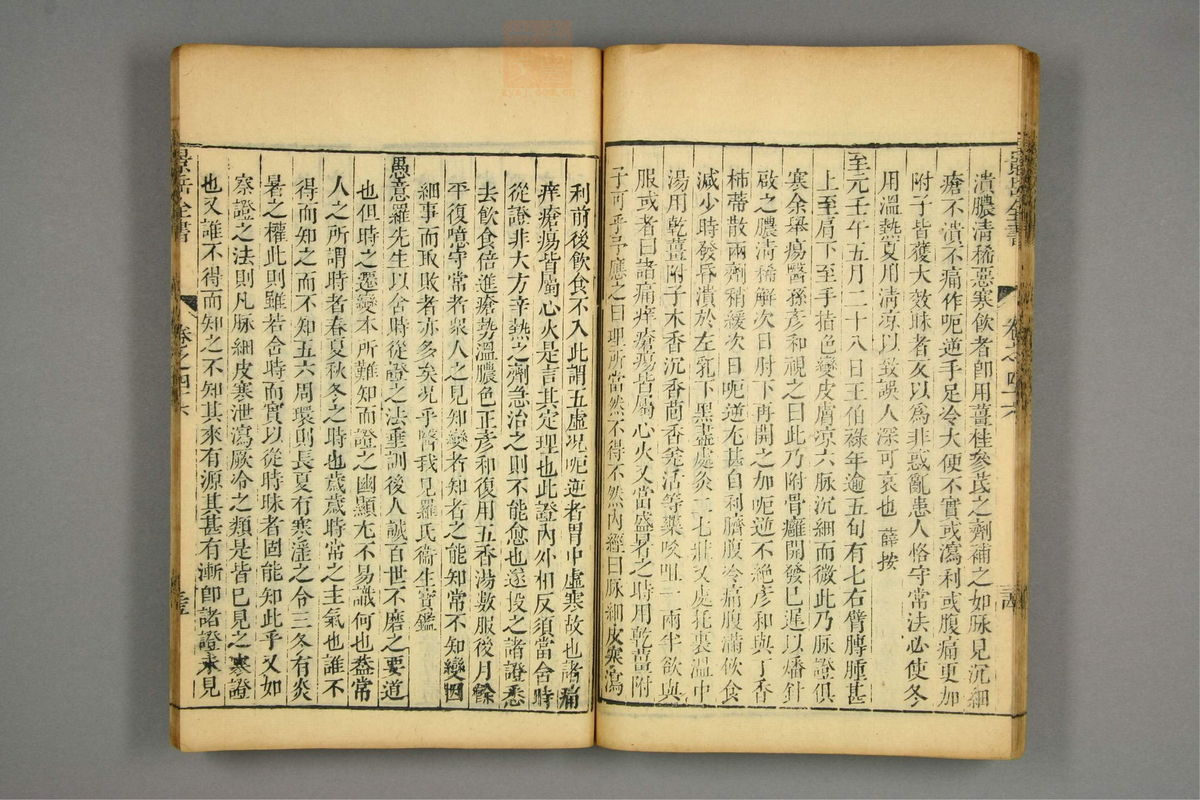 潰膿清稀惡寒飲者卽用薑桂參芪之劑補之如脉見沉細
瘡不潰不痛作呃逆手足冷大便不實或瀉利或腹痛更加
附子皆獲大效昧者反以爲非惑亂患人恪守常法必使冬
用溫熱夏用清凉以致誤人深可哀也 薛按
至元壬午五月二十八日王伯祿年逾五旬有七右臂膊腫甚
上至肩下至手指色變皮膚凉六脉沉細而微此乃脉證俱
寒余舉瘍醫孫彥和視之曰此乃附骨癰開發已遲以燔針
啟之膿清稀解次日肘下再開之加呃逆不絕彥和與丁香
柿蒂散兩劑稍緩次日呃逆尤甚自利臍腹冷痛腹滿飲食
減少時發昏潰於左乳下黑盡處灸二七壯又處托裏溫中
湯用乾薑附子木香沉香茴香羗活等藥㕮咀一兩半欲與
服或者曰諸痛痒瘡瘍皆屬心火又當盛暑之時用乾薑附
子可乎予應之曰理所當然不得不然內經曰脉細皮寒瀉
利前後飲食不入此謂五虛况呃逆者胃中虛寒故也諸痛
痒瘡瘍皆屬心火是言其定理也此證內外相反須當舍時
從證非大方辛熱之劑急治之則不能愈也遂投之諸證悉
去飲食倍進瘡勢溫膿色正彥和復用五香湯數服後月餘
平復噫守常者衆人之見知變者知者之能知常不知變因
細事而取敗者亦多矣况乎醫我見羅氏衛生寶鑑
愚意羅先生以舍時從證之法垂訓後人誠百世不磨之要道
也但時之遷變本所難知而證之幽顯尤不易識何也葢常
人之所謂時者春夏秋冬之時也歲歲時常之主氣也誰不
得而知之而不知五六周環則長夏有寒淫之令三冬有炎
暑之權此則雖若舍時而實以從時昧者固能知此乎又如
察證之法則凡脉細皮寒泄瀉厥冷之類是皆已見之寒證
也又誰不得而知之不知其來有源其甚有漸卽諸證未見
景岳全書
卷之四十六
景岳全書
卷之四十六